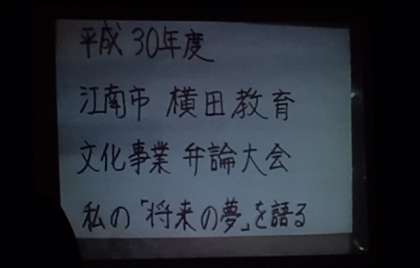 平成 30年度
江南市 横田教育
文化事業 弁論大会
私の「将来の夢」を語る